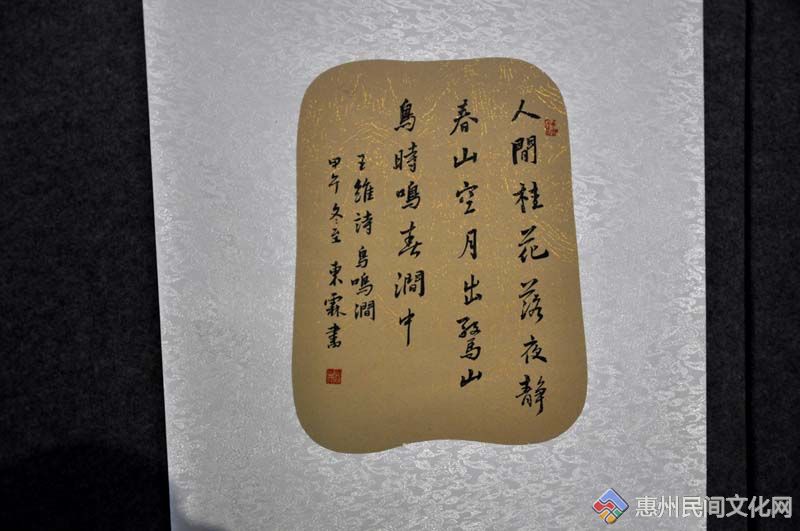 人間桂花落夜靜
春山空月出驚山
鳥時鳴春澗中
王維詩鳥鳴澗
甲午冬至東霖書
惠州民间文化网